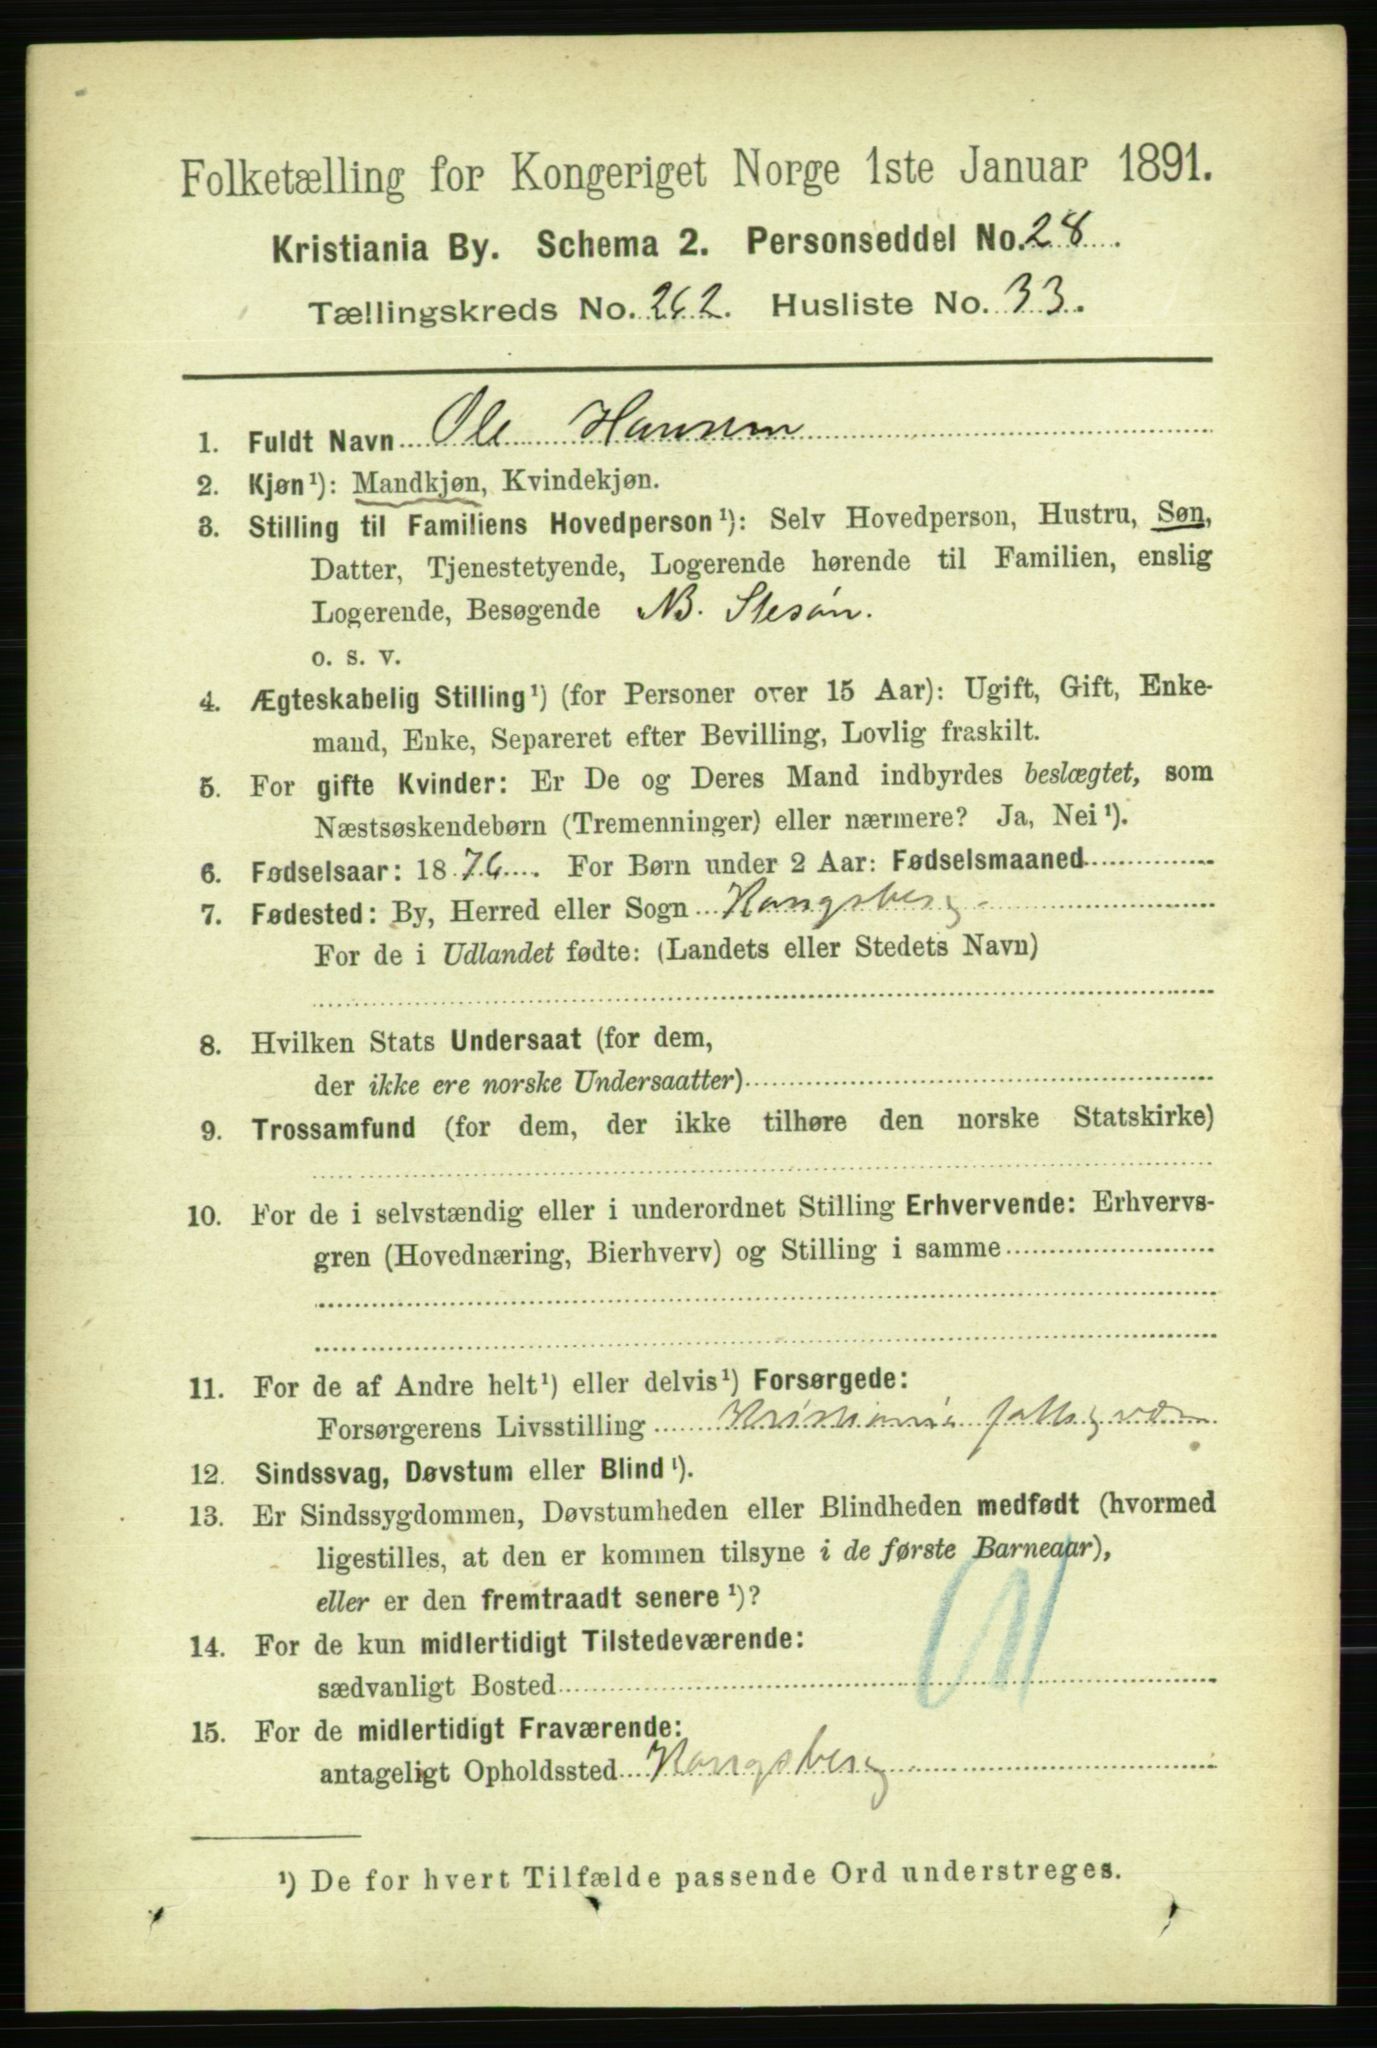 Folketælling for Kongeriget Norge 1ste Januar 1891.
Kristiania By. Schema 2. Personseddel No. 28.
Tællingskreds No. 262. Husliste No. 33.
1. Fuldt Navn Ole Hansen
2. Kjøn¹): Mandkjøn, Kvindekjøn.
3. Stilling til Familiens Hovedperson¹): Selv Hovedperson, Hustru, Søn,
Datter, Tjenestetyende, Logerende hørende til Familien, enslig
Logerende, Besøgende NB. Stesøn.
o. s. v.
4. Ægteskabelig Stilling¹) (for Personer over 15 Aar): Ugift, Gift, Enke-
mand, Enke, Separeret efter Bevilling, Lovlig fraskilt.
5. For gifte Kvinder: Er De og Deres Mand indbyrdes beslægtet, som
Næstsøskendebørn (Tremenninger) eller nærmere? Ja, Nei¹).
6. Fødselsaar: 1876. For Børn under 2 Aar: Fødselsmaaned
7. Fødested: By, Herred eller Sogn Kongsberg
For de i Udlandet fødte: (Landets eller Stedets Navn)
8. Hvilken Stats Undersaat (for dem,
der ikke ere norske Undersaatter)
9. Trossamfund (for dem, der ikke tilhøre den norske Statskirke)
10. For de i selvstændig eller i underordnet Stilling Erhvervende: Erhvervs-
gren (Hovednæring, Bierhverv) og Stilling i samme
11. For de af Andre helt¹) eller delvis¹) Forsørgede:
Forsørgerens Livsstilling Kristiania
12. Sindssvag, Døvstum eller Blind¹).
13. Er Sindssygdommen, Døvstumheden eller Blindheden medfødt (hvormed
ligestilles, at den er kommen tilsyne i de første Barneaar),
eller er den fremtraadt senere¹)?
14. For de kun midlertidigt Tilstedeværende:
sædvanligt Bosted
15. For de midlertidigt Fraværende:
antageligt Opholdssted Kongsberg
¹) De for hvert Tilfælde passende Ord understreges.